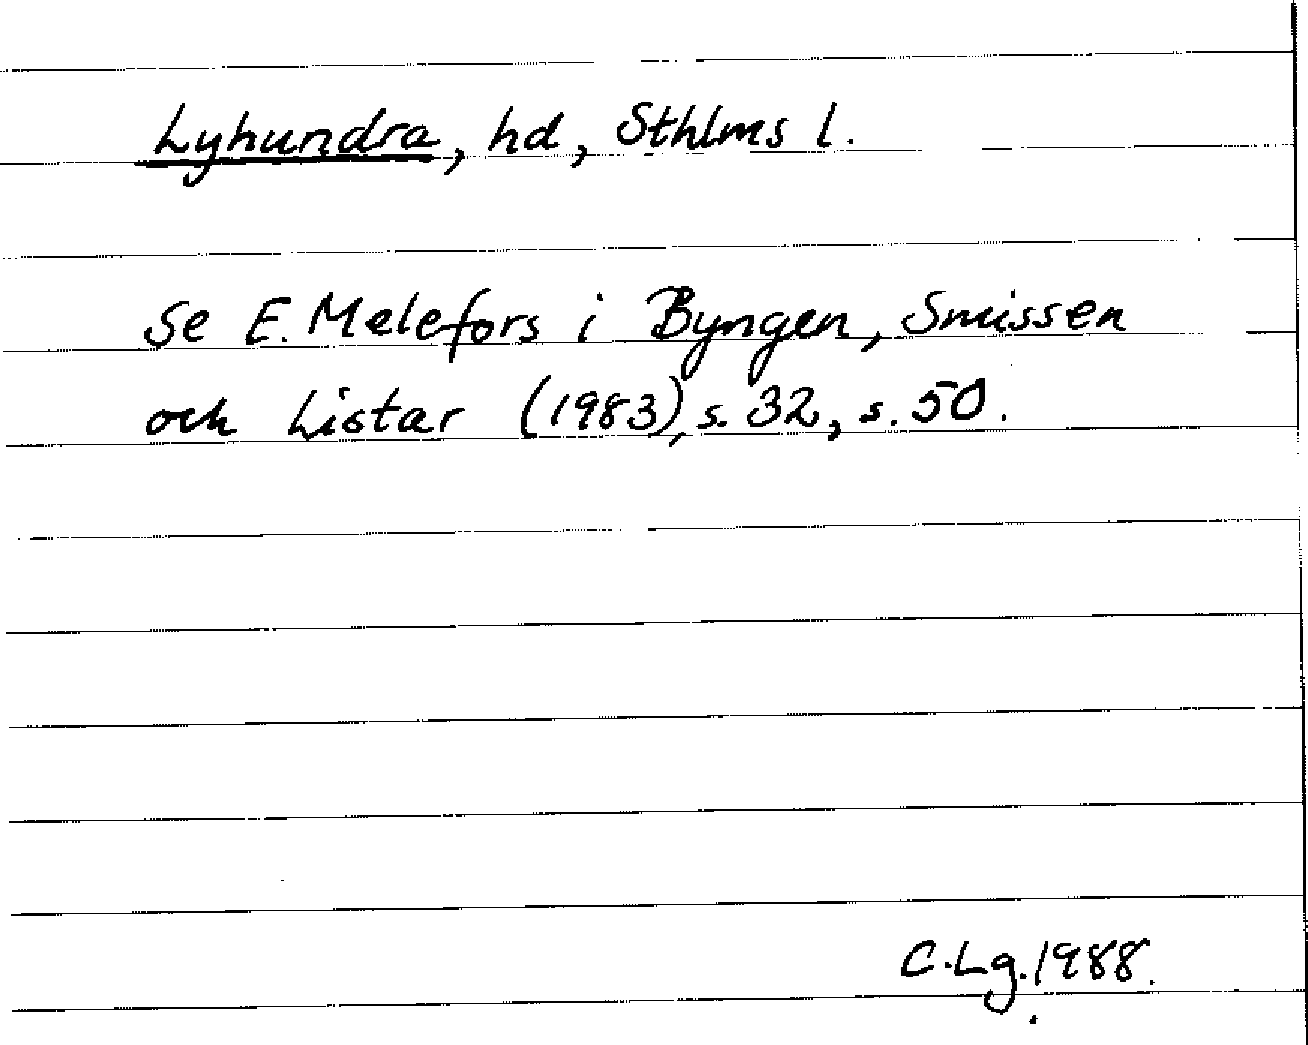 Lyhundra, hd, Sthlms l.
Se E. Melefors i Byngen, Smissen
och Listar (1983), s. 32, s. 50.
C.Lg. 1988.